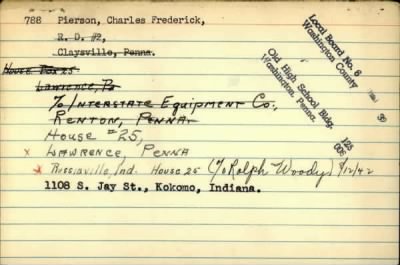 788 Pierson, Charles Frederick,
R. D. #2,
Claysville, Penna.
House Box 25
Lawrence, Pa
c/o Interstate Equipment Co.,
Renton, Penna.
House #25,
x Lawrence, Penna
x Russiaville, Ind. House 25 (c/o Ralph Woody) 9/12/42
1108 S. Jay St., Kokomo, Indiana.
Local Board No. 6
Washington County
Old High School Bldg.
Washington, Penna.
125
006